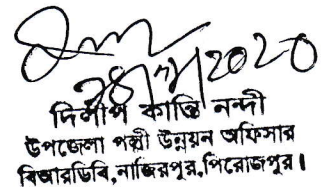 দিলীপ কান্তি নন্দী
উপজেলা পল্লী উন্নয়ন অফিসার
বিআরডিবি,নাজিরপুর,পিরোজপুর।